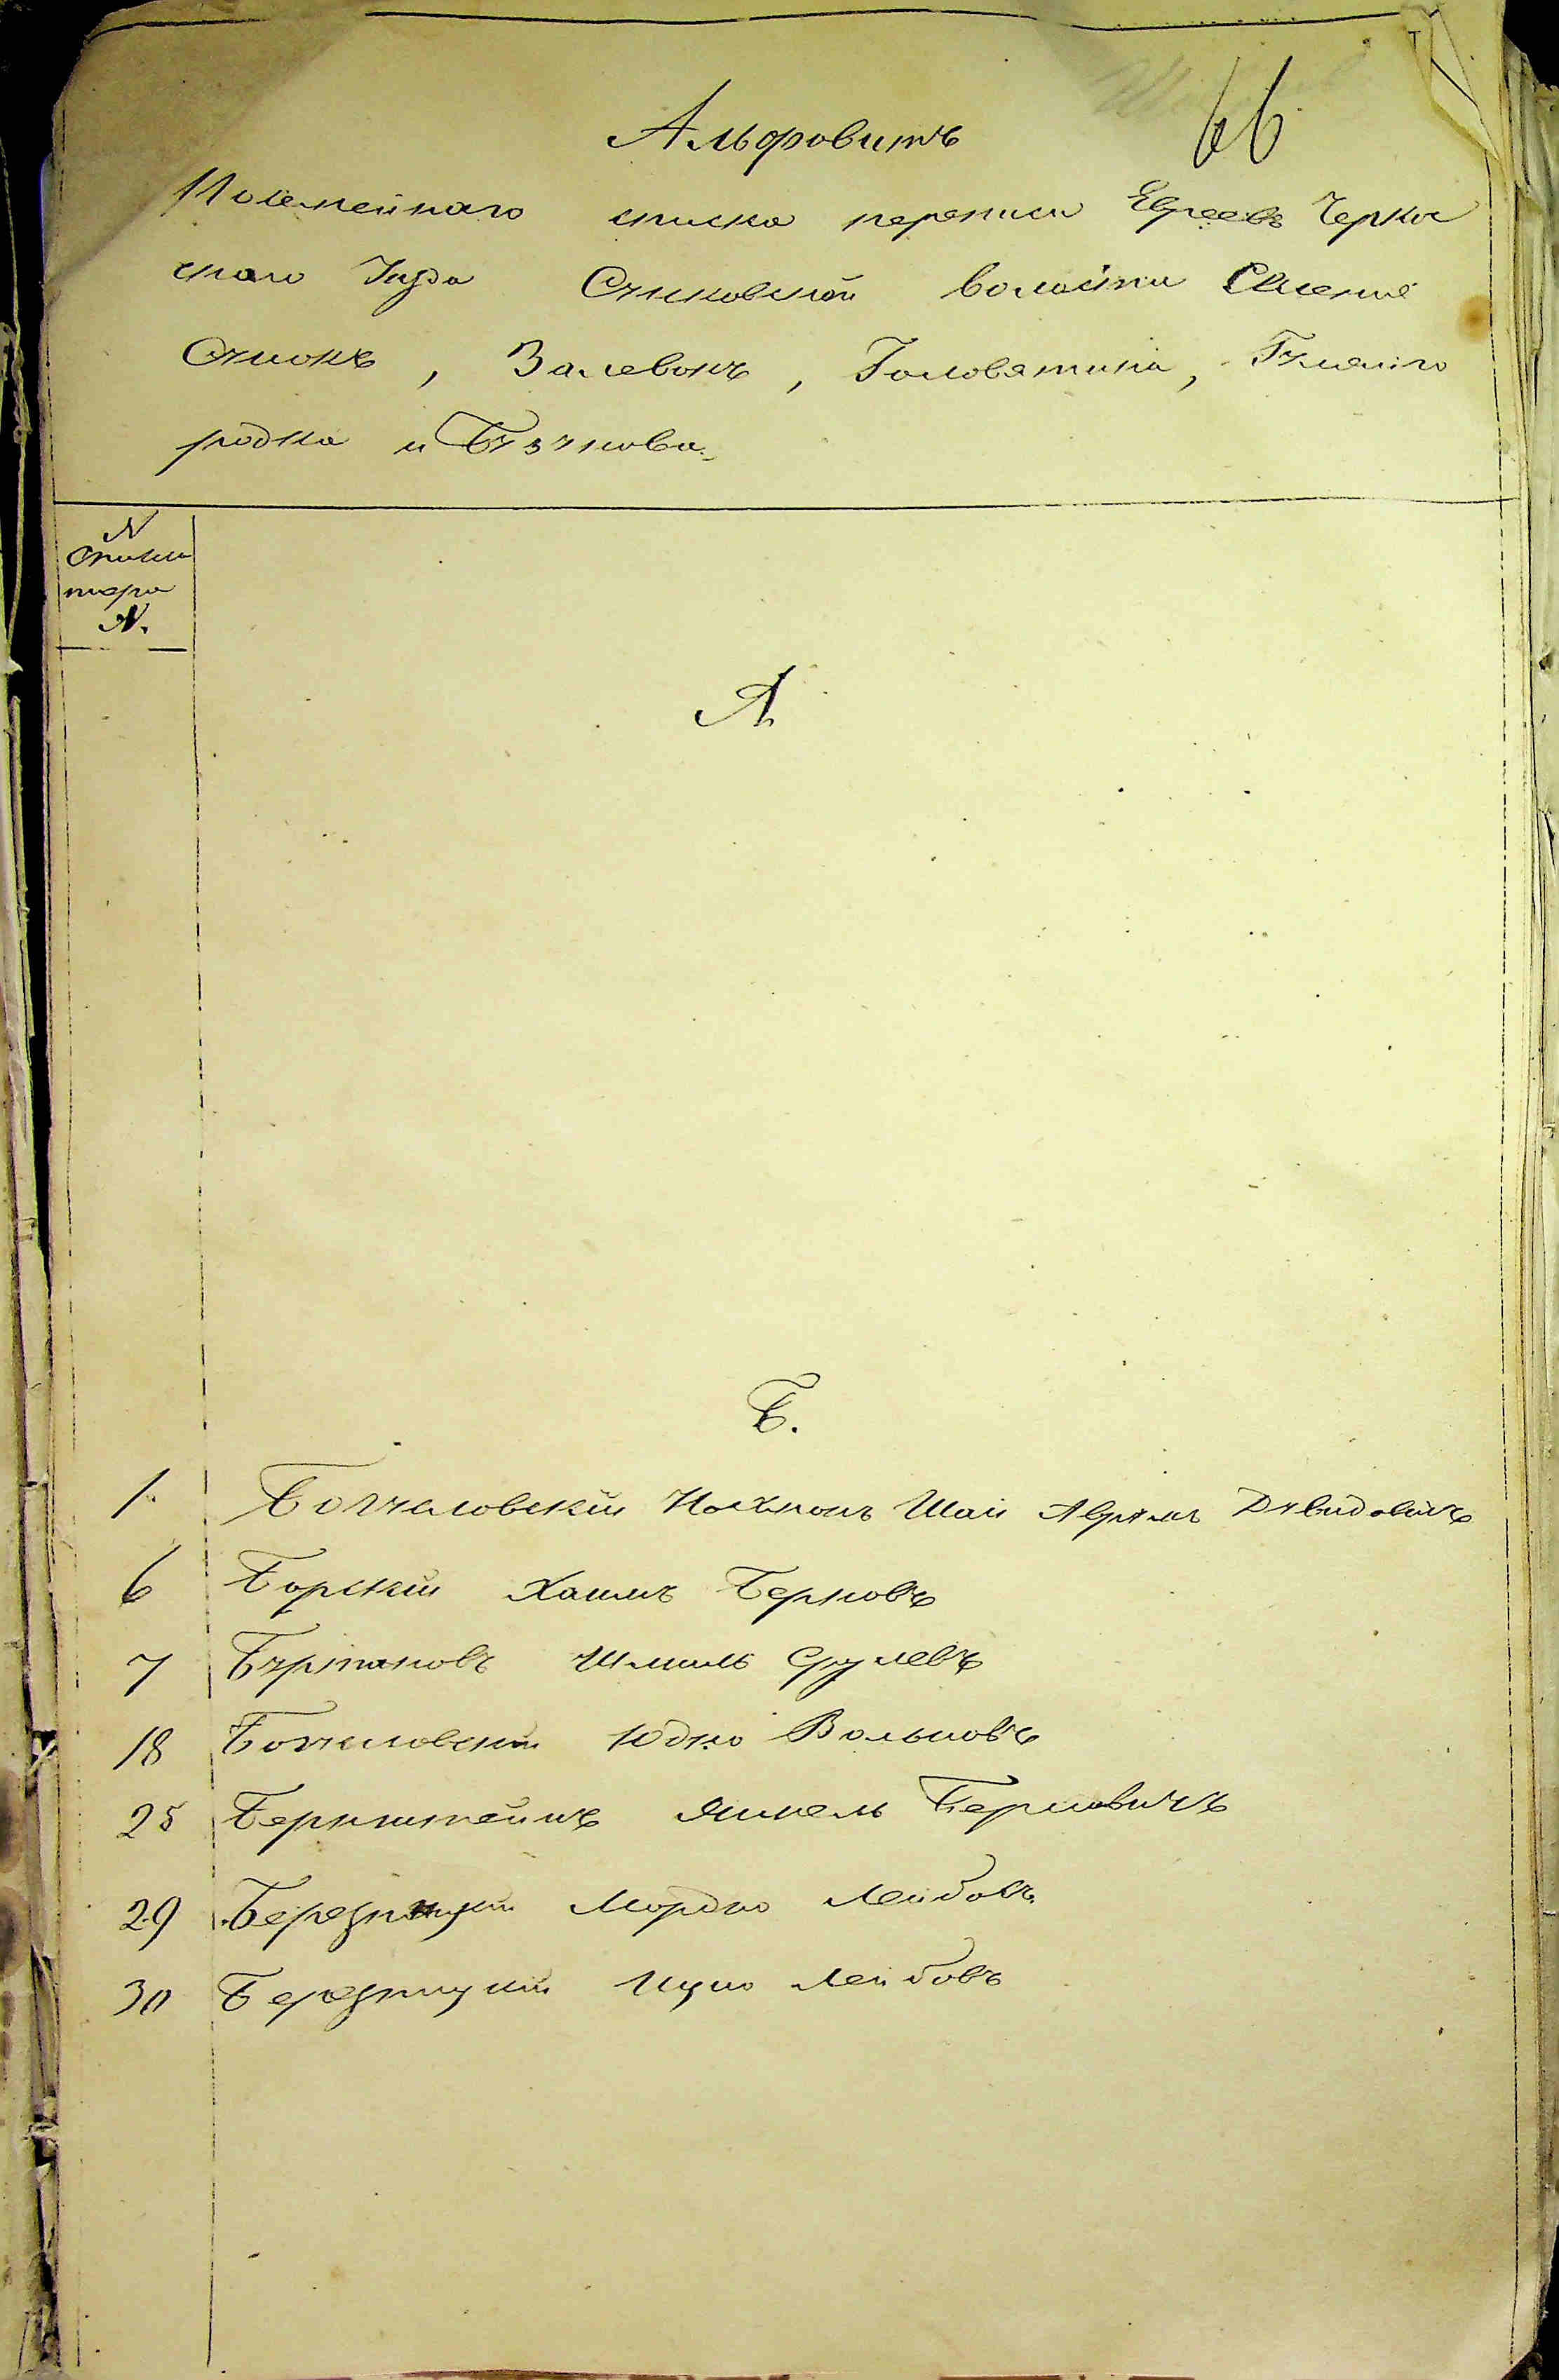 66
Альфовитъ
Посемейнаго списка переписи Евреевъ Черка
скаго Уезда Сунковской волости Селений
Сунокъ, Залевокъ, Головятина, Гуляйго
родка и Бузукова.
N
N.
А.
Б.
1. Богуславскій Нахманъ Шая Аврумъ Дувидовичъ
6 Борскій Хаимъ Берковъ
7 Буртаковъ Шмиль Срулевъ
18 Богуславскій Юдко Вольковъ
25 Бернштейнъ Янкель Берковичъ
29 Березницкій Мордко Лейбовъ
30 Березницкій Ицко Лейбовъ